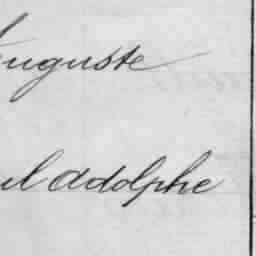 Auguste
ul Adolphe